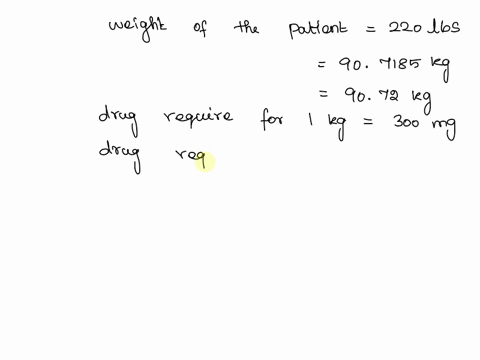 weight of the patient = 220 lbs
= 90.7185 kg
= 90.72 kg
drug require for 1 kg = 300 mg
drug req